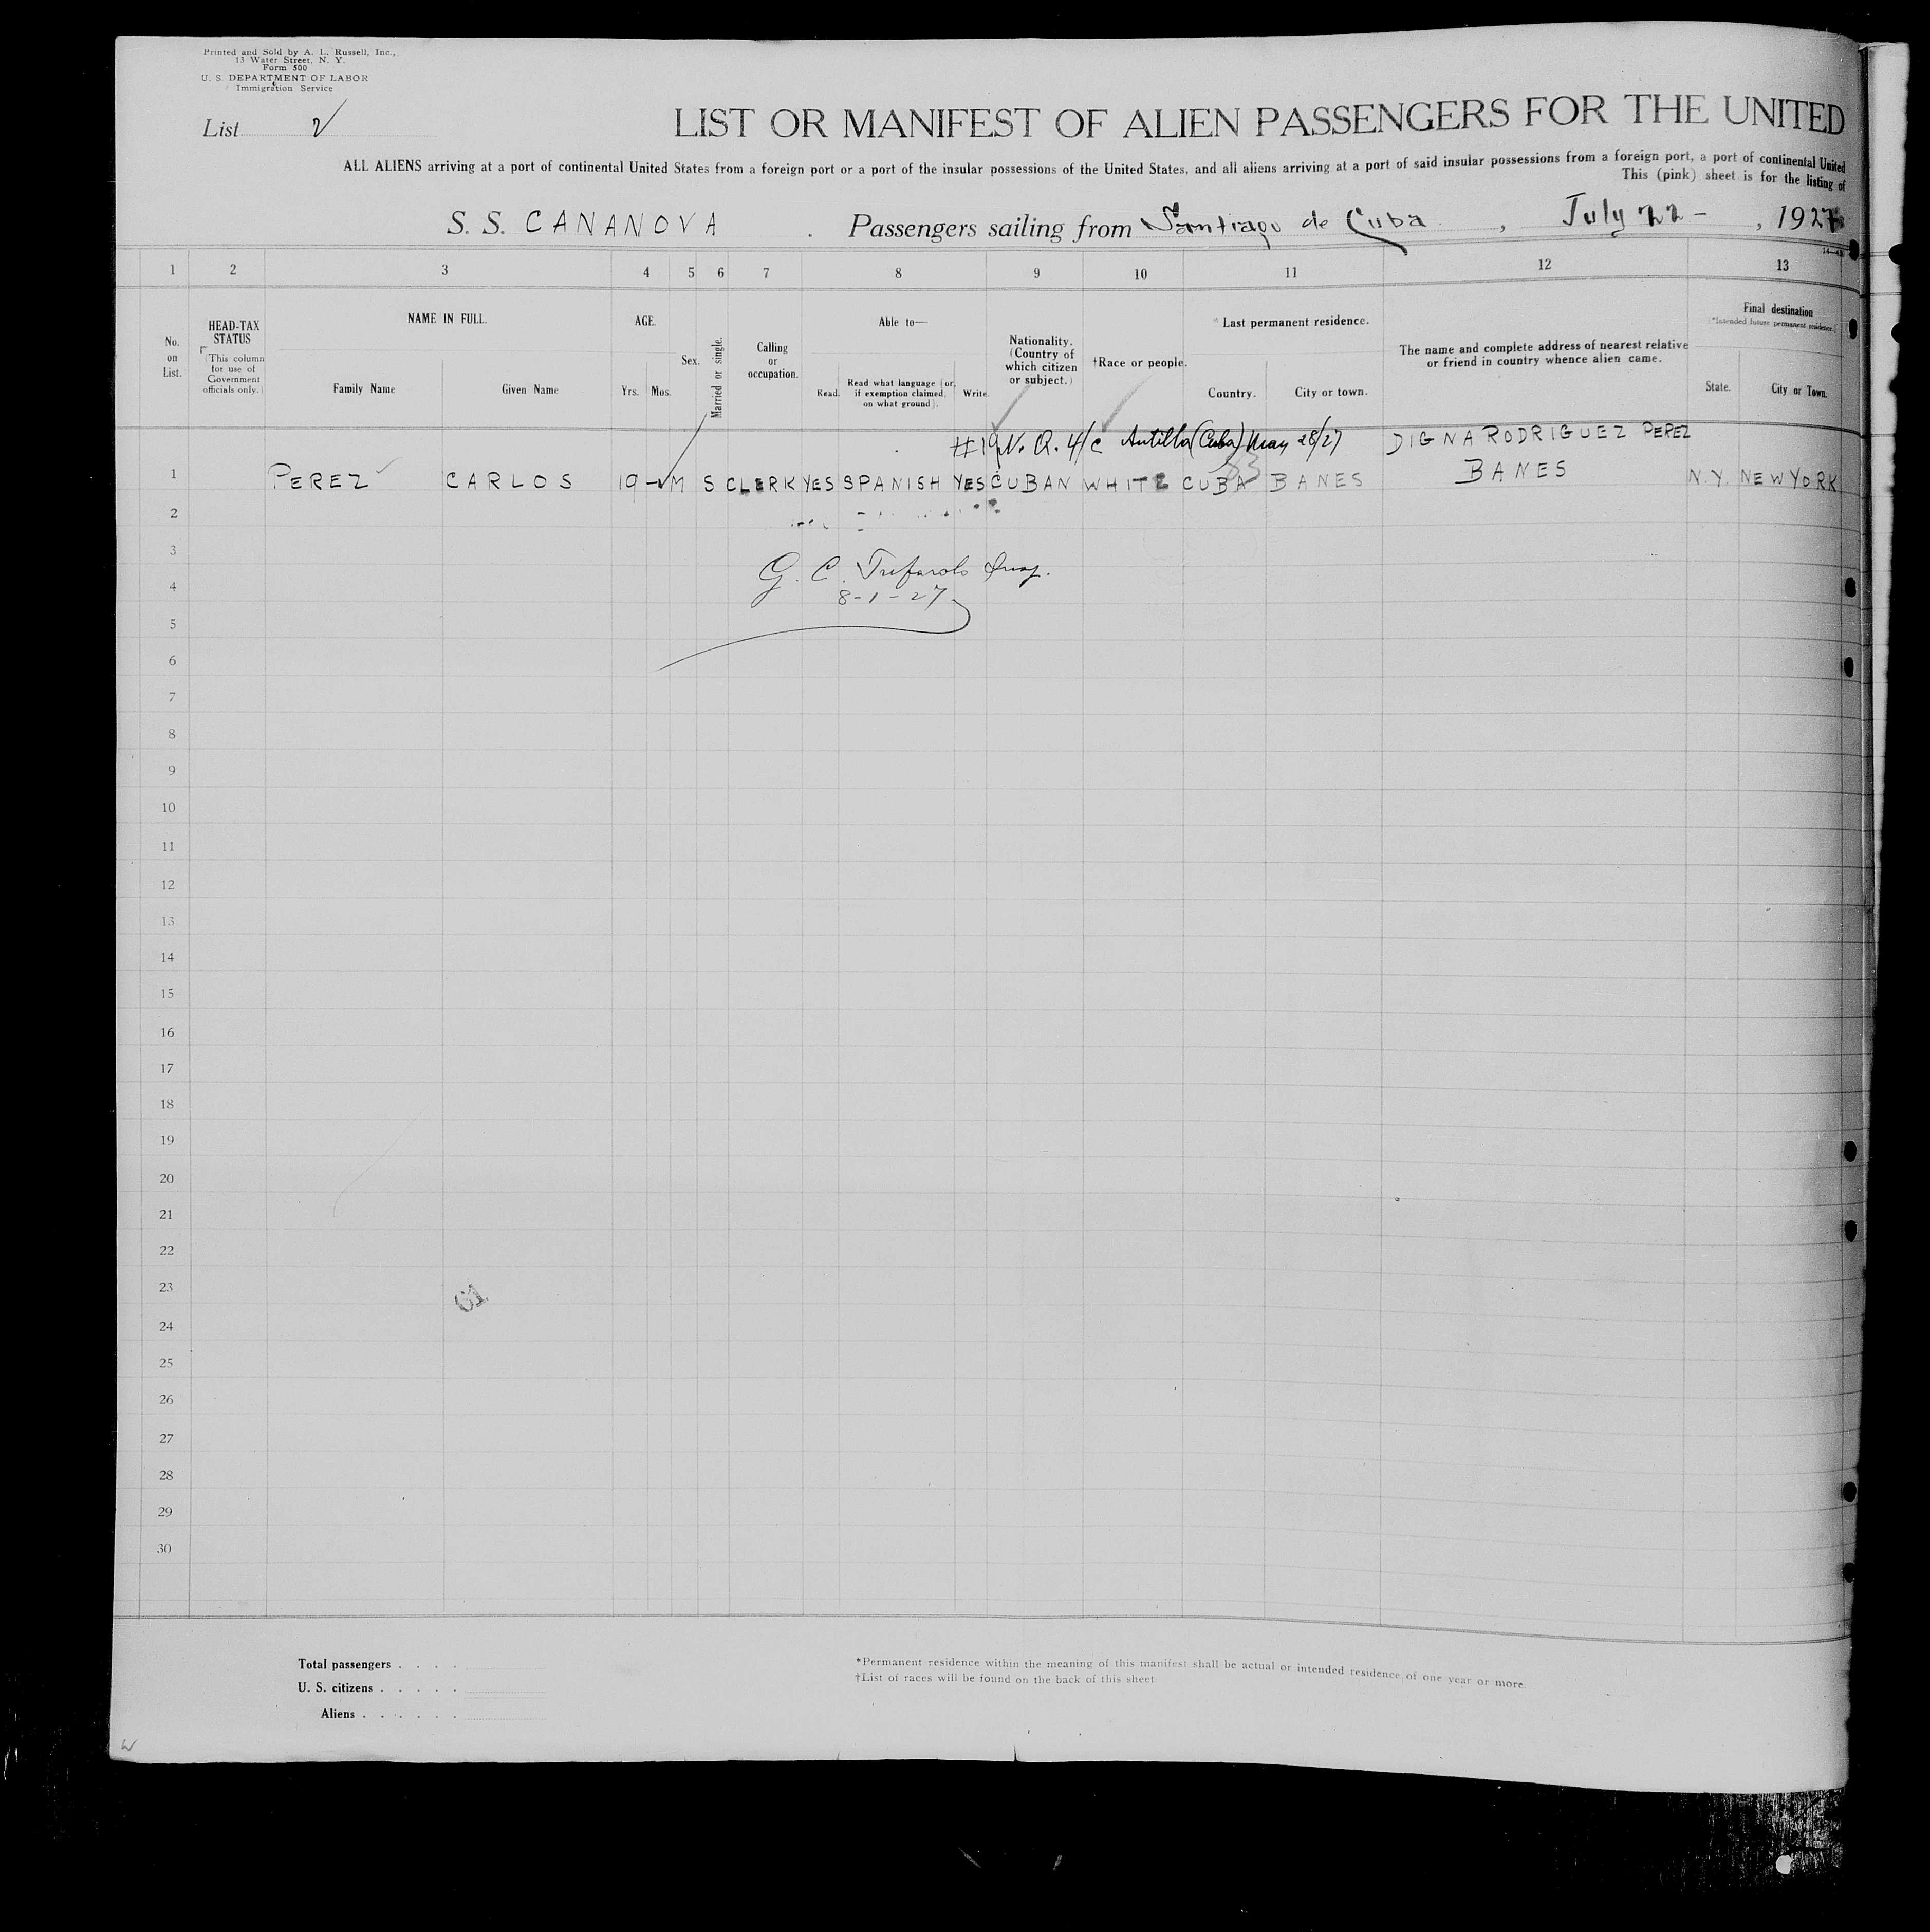 Printed and Sold by A. L. Russell, Inc.,
13 Water Street, N. Y.
Form 500
U. S. DEPARTMENT OF LABOR
Immigration Service
List
LIST OR MANIFEST OF ALIEN PASSENGERS FOR THE UNITED
ALL ALIENS arriving at a port of continental United States from a foreign port or a port of the insular possessions of the United States, and all aliens arriving at a port of said insular possessions from a foreign port, a port of continental United
This (pink) sheet is for the listing of
S. S. CANANOVA . Passengers sailing from Santiago de Cuba , July 22 - , 1927
1 2 3 4 5 6 7 8 9 10 11 12 13
No. on List.
HEAD-TAX STATUS
(This column for use of Government officials only.)
NAME IN FULL.
Family Name
Given Name
AGE.
Yrs.
Mos.
Sex.
Married or single.
Calling or occupation.
Able to—
Read.
Read what language (or, if exemption claimed, on what ground).
Write.
Nationality. (Country of which citizen or subject.)
†Race or people.
*Last permanent residence.
Country.
City or town.
The name and complete address of nearest relative or friend in country whence alien came.
Final destination
(*Intended future permanent residence.)
State.
City or Town.
Antilla (Cuba) May 28/27 DIGNA RODRIGUEZ PEREZ
1 PEREZ CARLOS 19 - M S CLERK YES SPANISH YES CUBAN WHITE CUBA BANES BANES N.Y. NEW YORK
2
3
G. C. Insp.
4
8-1-27
5
6
7
8
9
10
11
12
13
14
15
16
17
18
19
20
21
22
23
24
25
26
27
28
29
30
Total passengers . . . .
U. S. citizens . . . . .
Aliens . . . . . .
*Permanent residence within the meaning of this manifest shall be actual or intended residence of one year or more.
†List of races will be found on the back of this sheet.